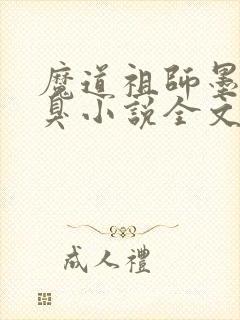 魔道祖師墨
臭小説全文
成人禮